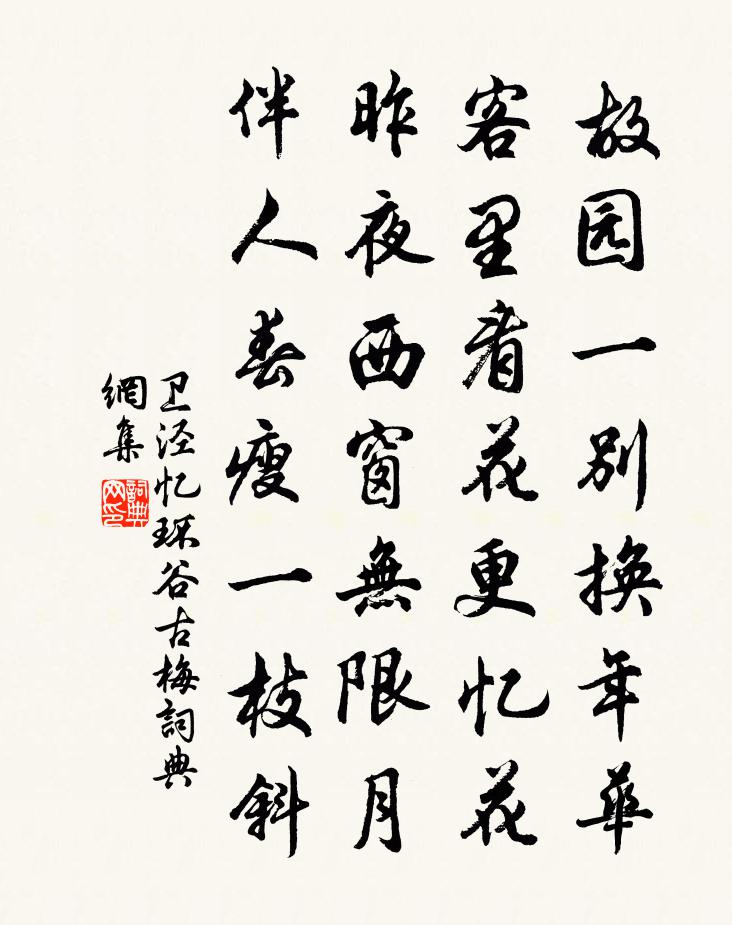 故园一别换年華
客里看花更忆花
昨夜西窗無限月
伴人春瘦一枝斜
卫泾忆环谷古梅詞典
網集
詞典
网印